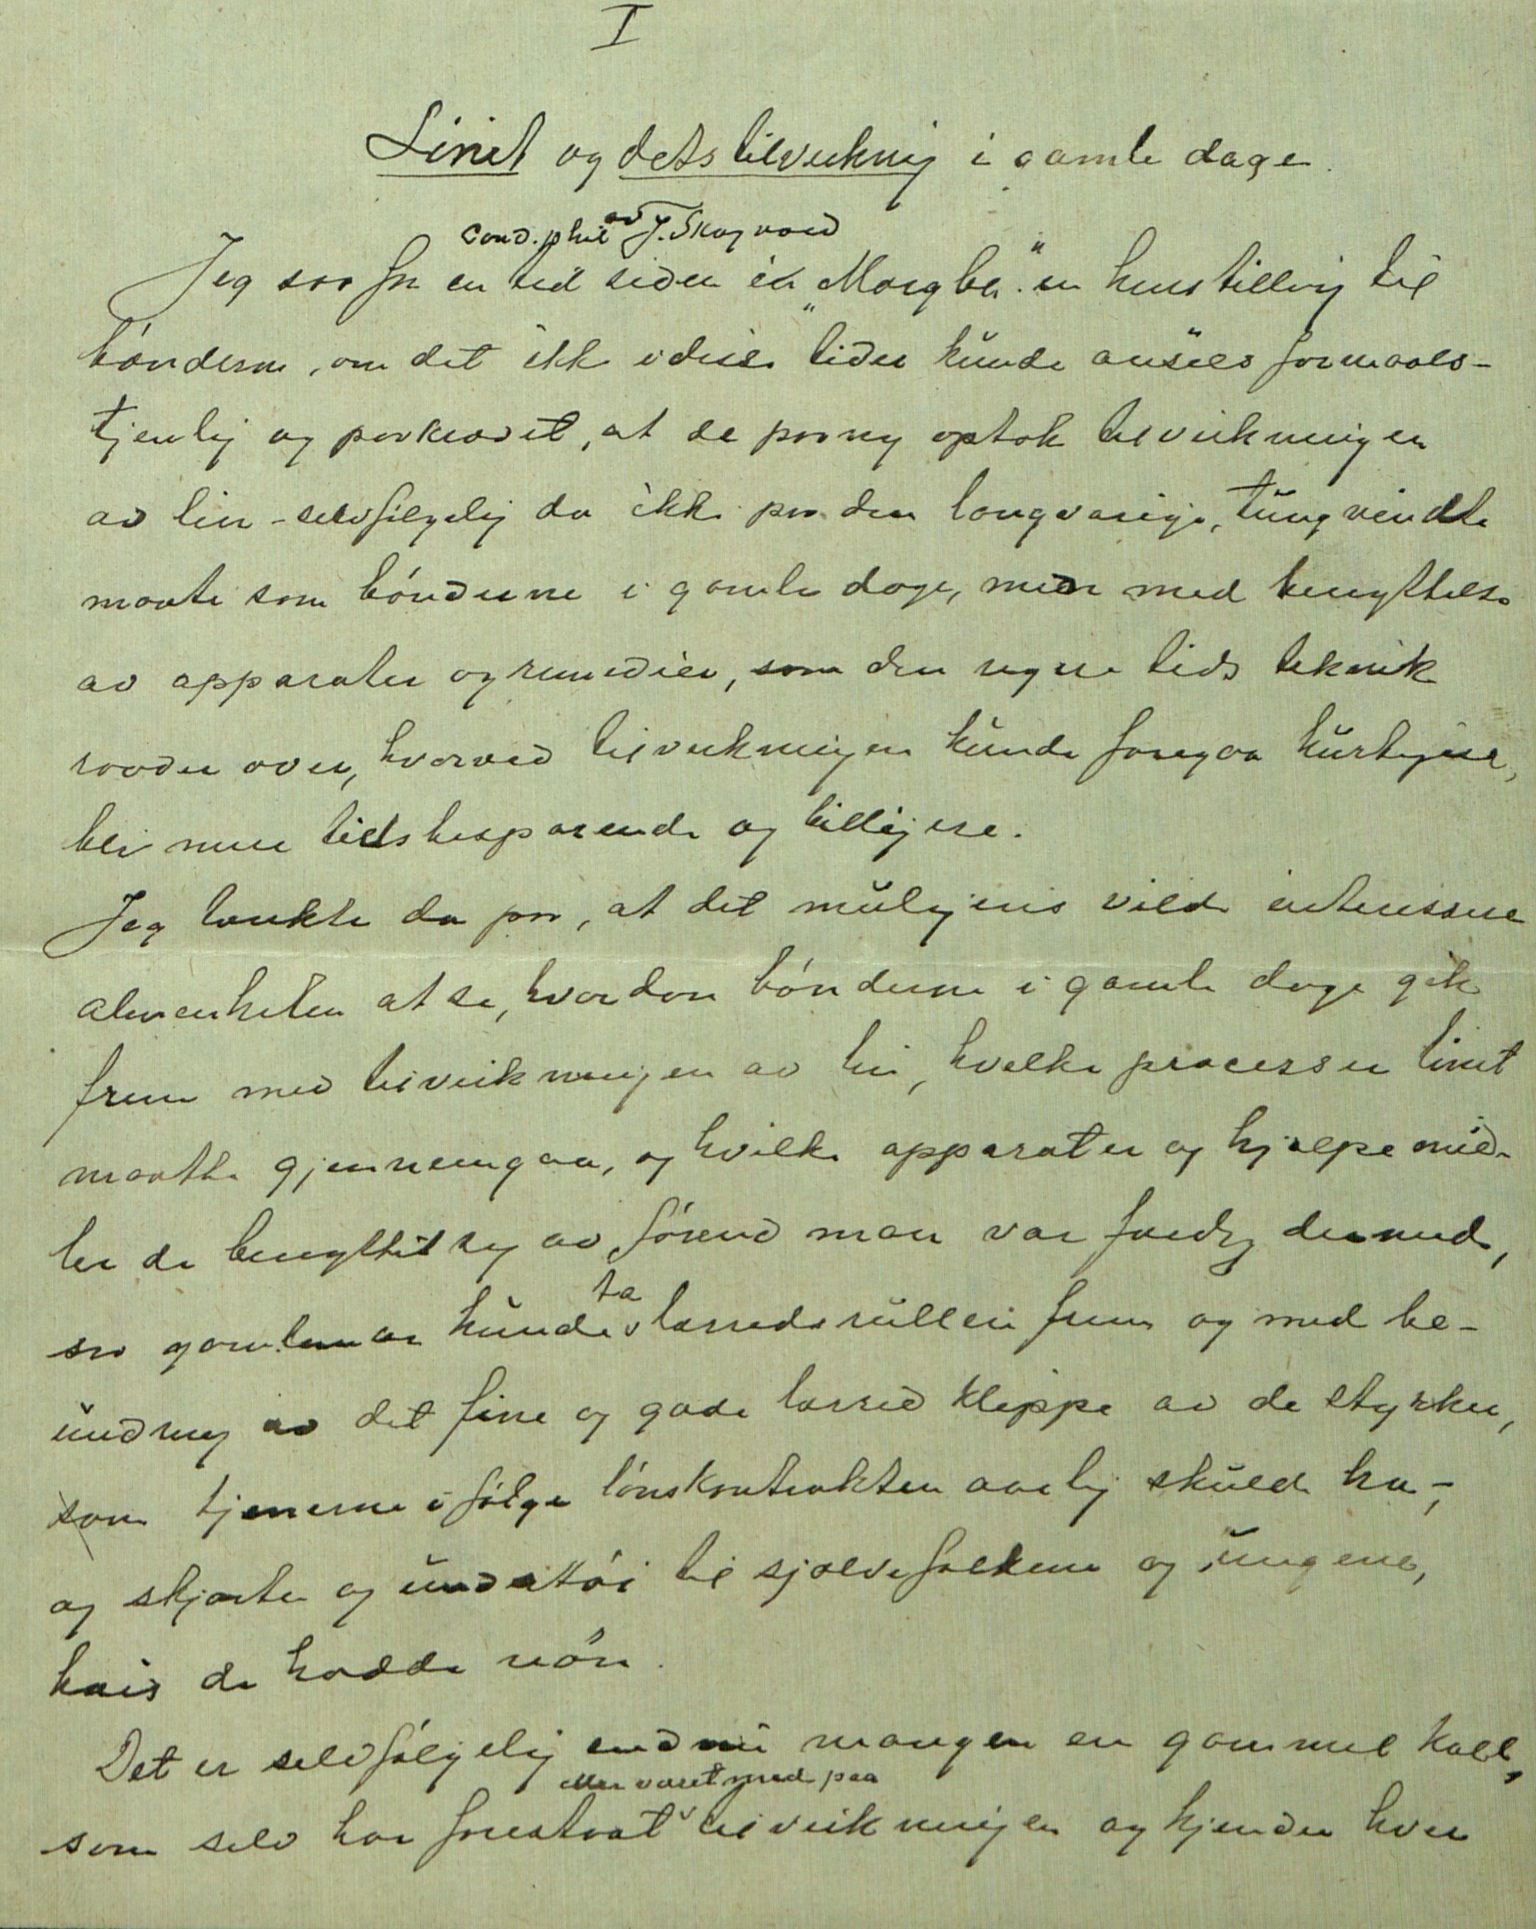 I
Linet og dets tilvirkning i gamle dage.
av
cand. phil J. Skogvold
Jeg saa for en tid siden i „Morgbl." en henstilling til
bønderne, om det ikke i disse tider kunde ansees formaals-
tjenlig og paakrævet, at de paany optok tilvirkningen
av lin - selvfølgelig da ikke paa den langvarige, tungvindte
maate som bønderne i gamle dage, men med benyttelse
av apparater og remedier, som den nyere tids teknik
raader over, hvorved tilvirkningen kunde foregaa hurtigere,
bli mere tidsbesparende og billigere.
Jeg tænkte da paa, at det muligens vilde interessere
almenheten at se, hvordan bønderne i gamle dage gik
frem med tilvirkningen av lin, hvilke processer linet
maatte gjennemgaa, og hvilke apparater og hjælpemid-
ler de benyttet sig av førend man var færdig dermed,
ta
saa gamlemor kunde lærredsrullen frem og med be-
undring av det fine og gode lærred klippe av de stykker,
som tjenerne ifølge lønskontrakten aarlig skulde ha -,
og skjorter og undertøi til sjølvefolkene og ungene,
hvis de hadde nøn.
Det er selvfølgelig endnu mangen en gammel kall,
eller været med paa
som selv har forestaat tilvirkningen og kjender hver